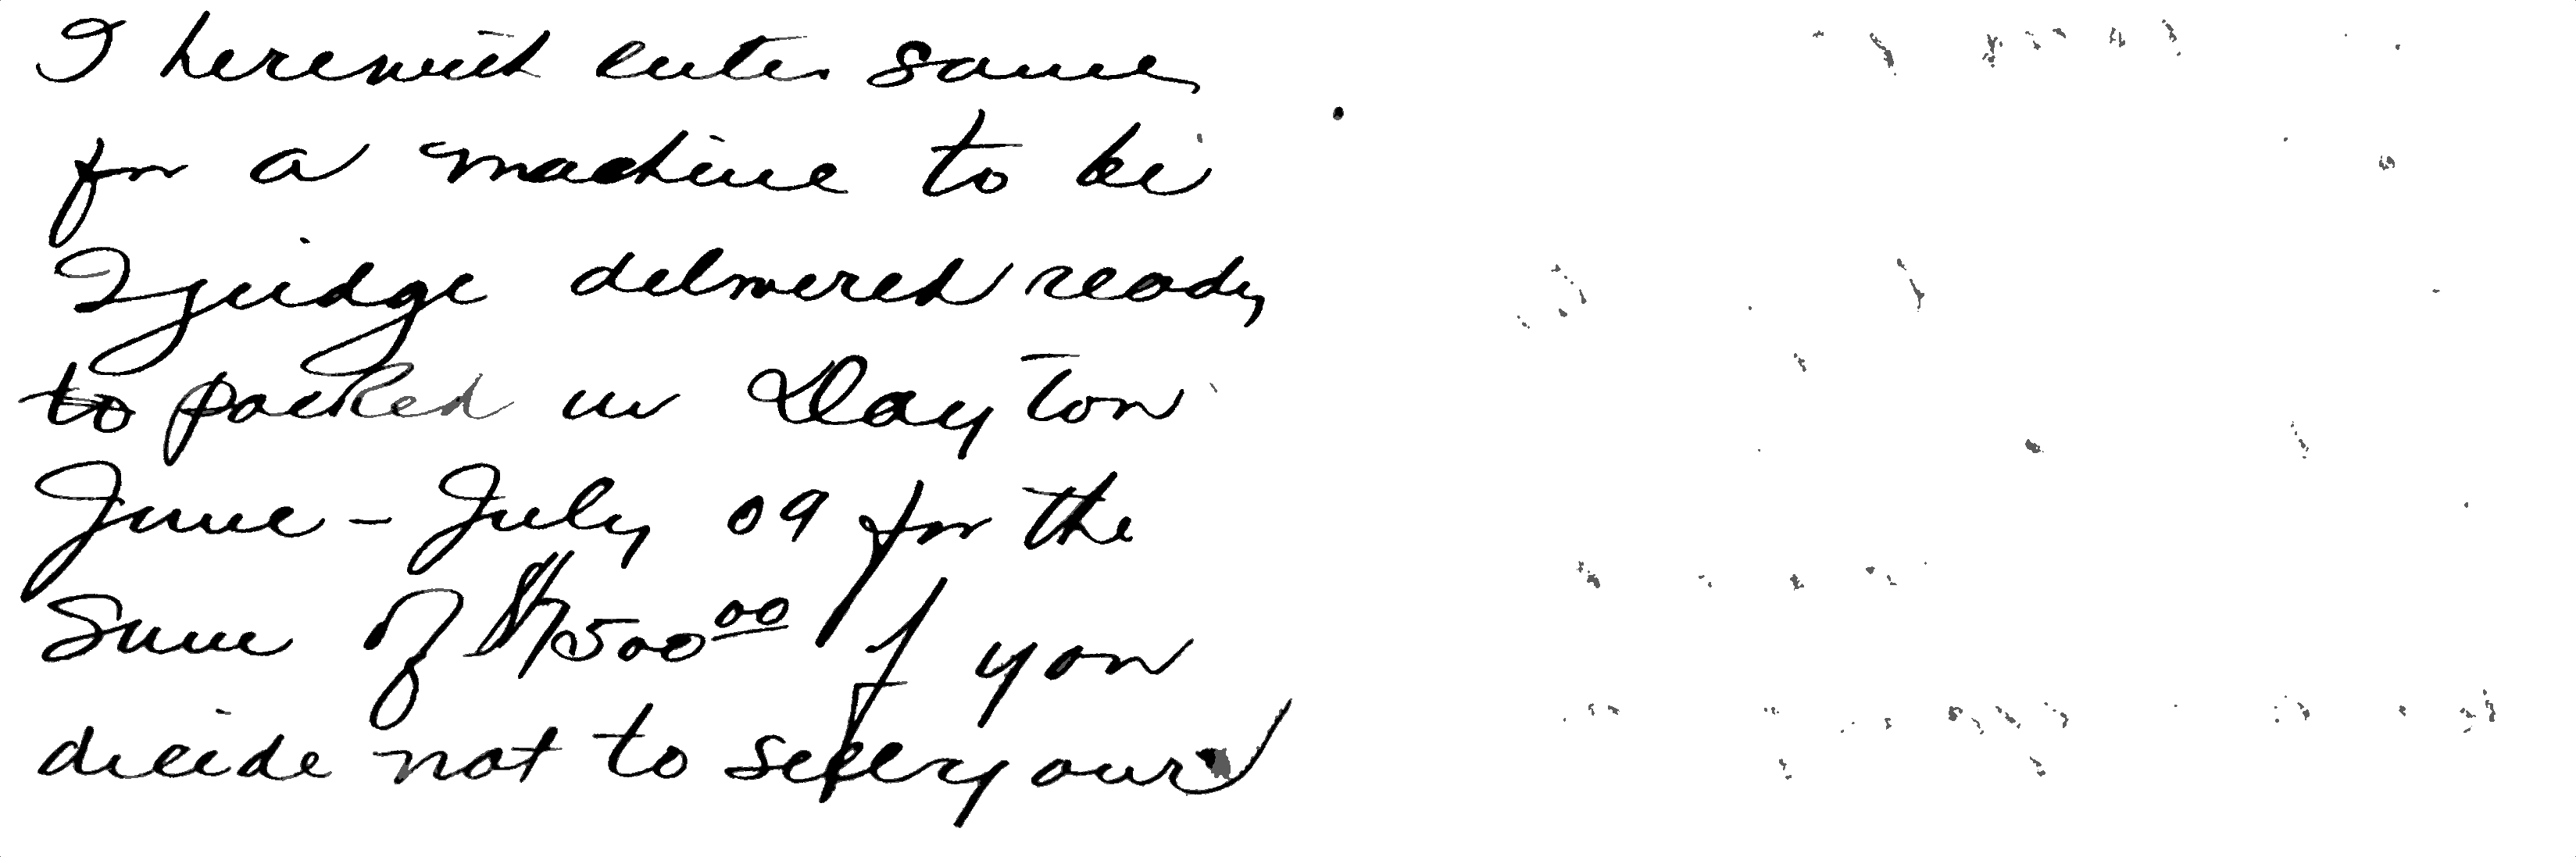 I herewith enter same
for a machine to be
I judge delivered ready
to packed in Dayton
June - July 09 for the
Sum of $7500.00 If you
decide not to sell your